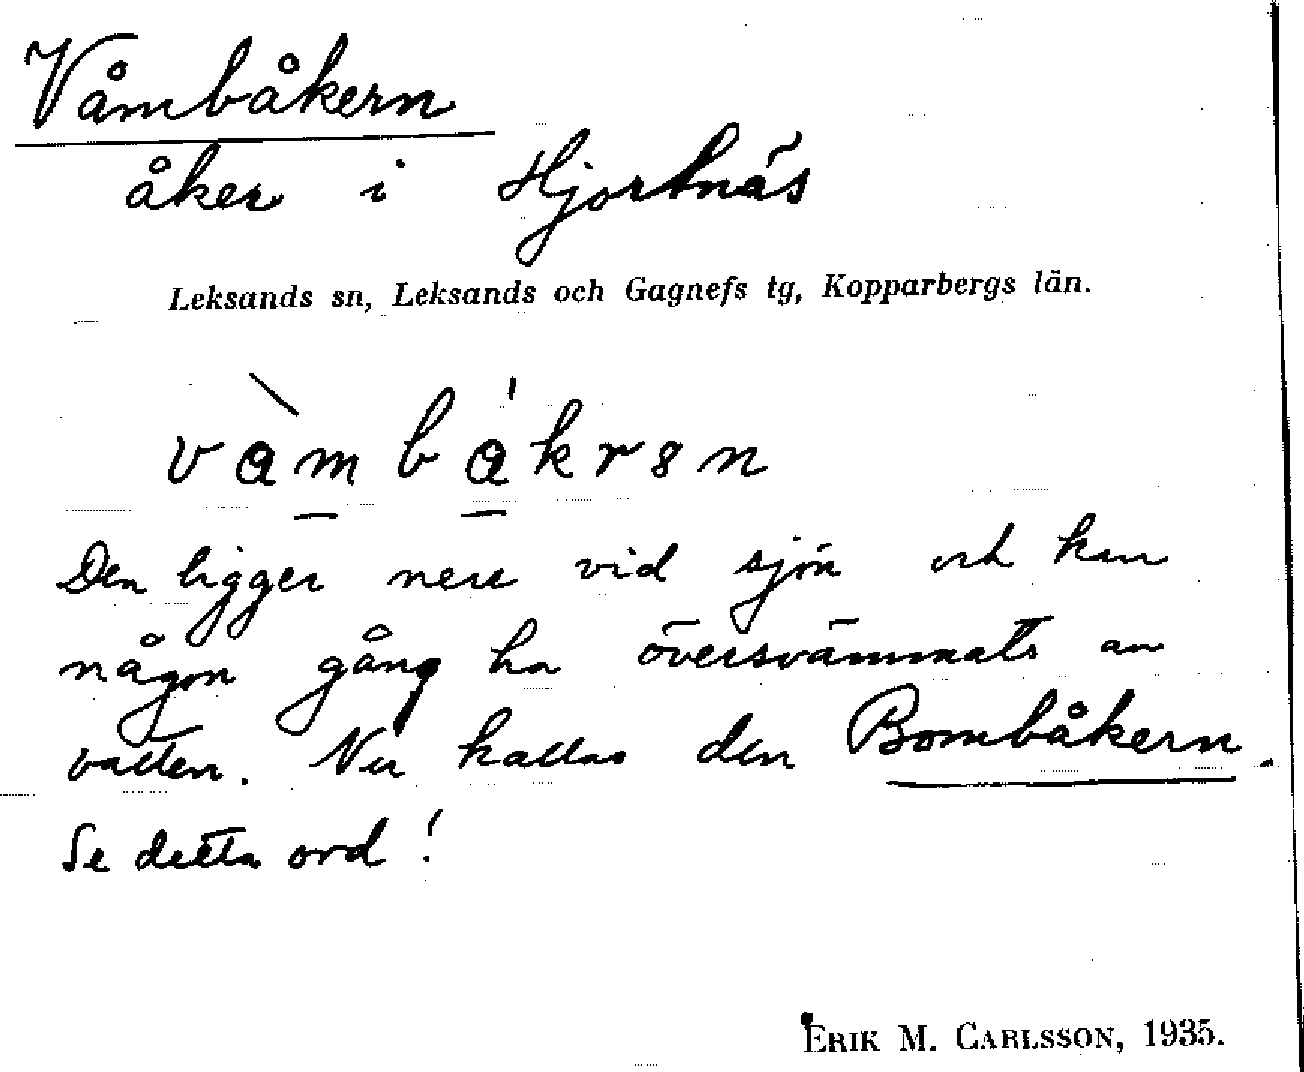 Våmbåkern
åker i Hjortnäs
Leksands sn, Leksands och Gagnefs tg, Kopparbergs län.
vàmbákrən
Den ligger nere vid sjön och kan
någon gång ha översvämmats av
vatten. Nu kallas den Bombåkern.
Se detta ord!
ERIK M. CARLSSON, 1935.